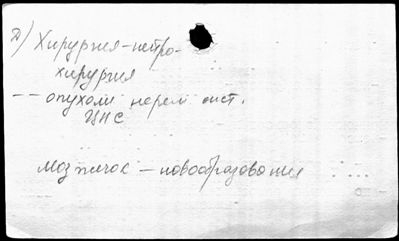 2) Хирургия-нейро-
хирургия
-- опухоли нервн сист.
ЦНС
мозжечок — новообразования